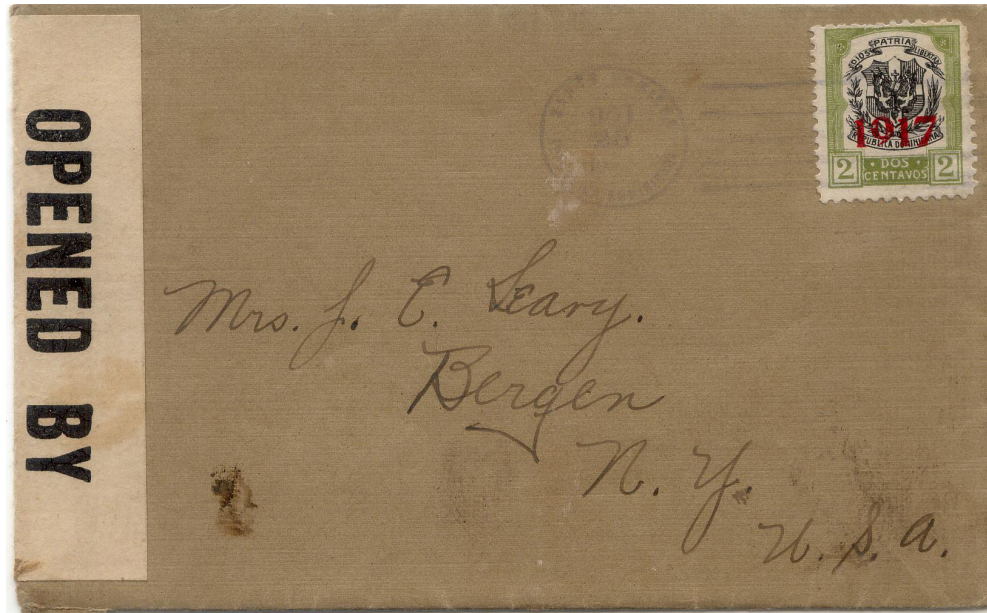 OPENED BY
DIOS PATRIA LIBERTAD
1917
REPUBLICA DOMINICANA
2 · DOS CENTAVOS · 2
Mrs. J. C. Leary.
Bergen
N. Y.
U. S. A.